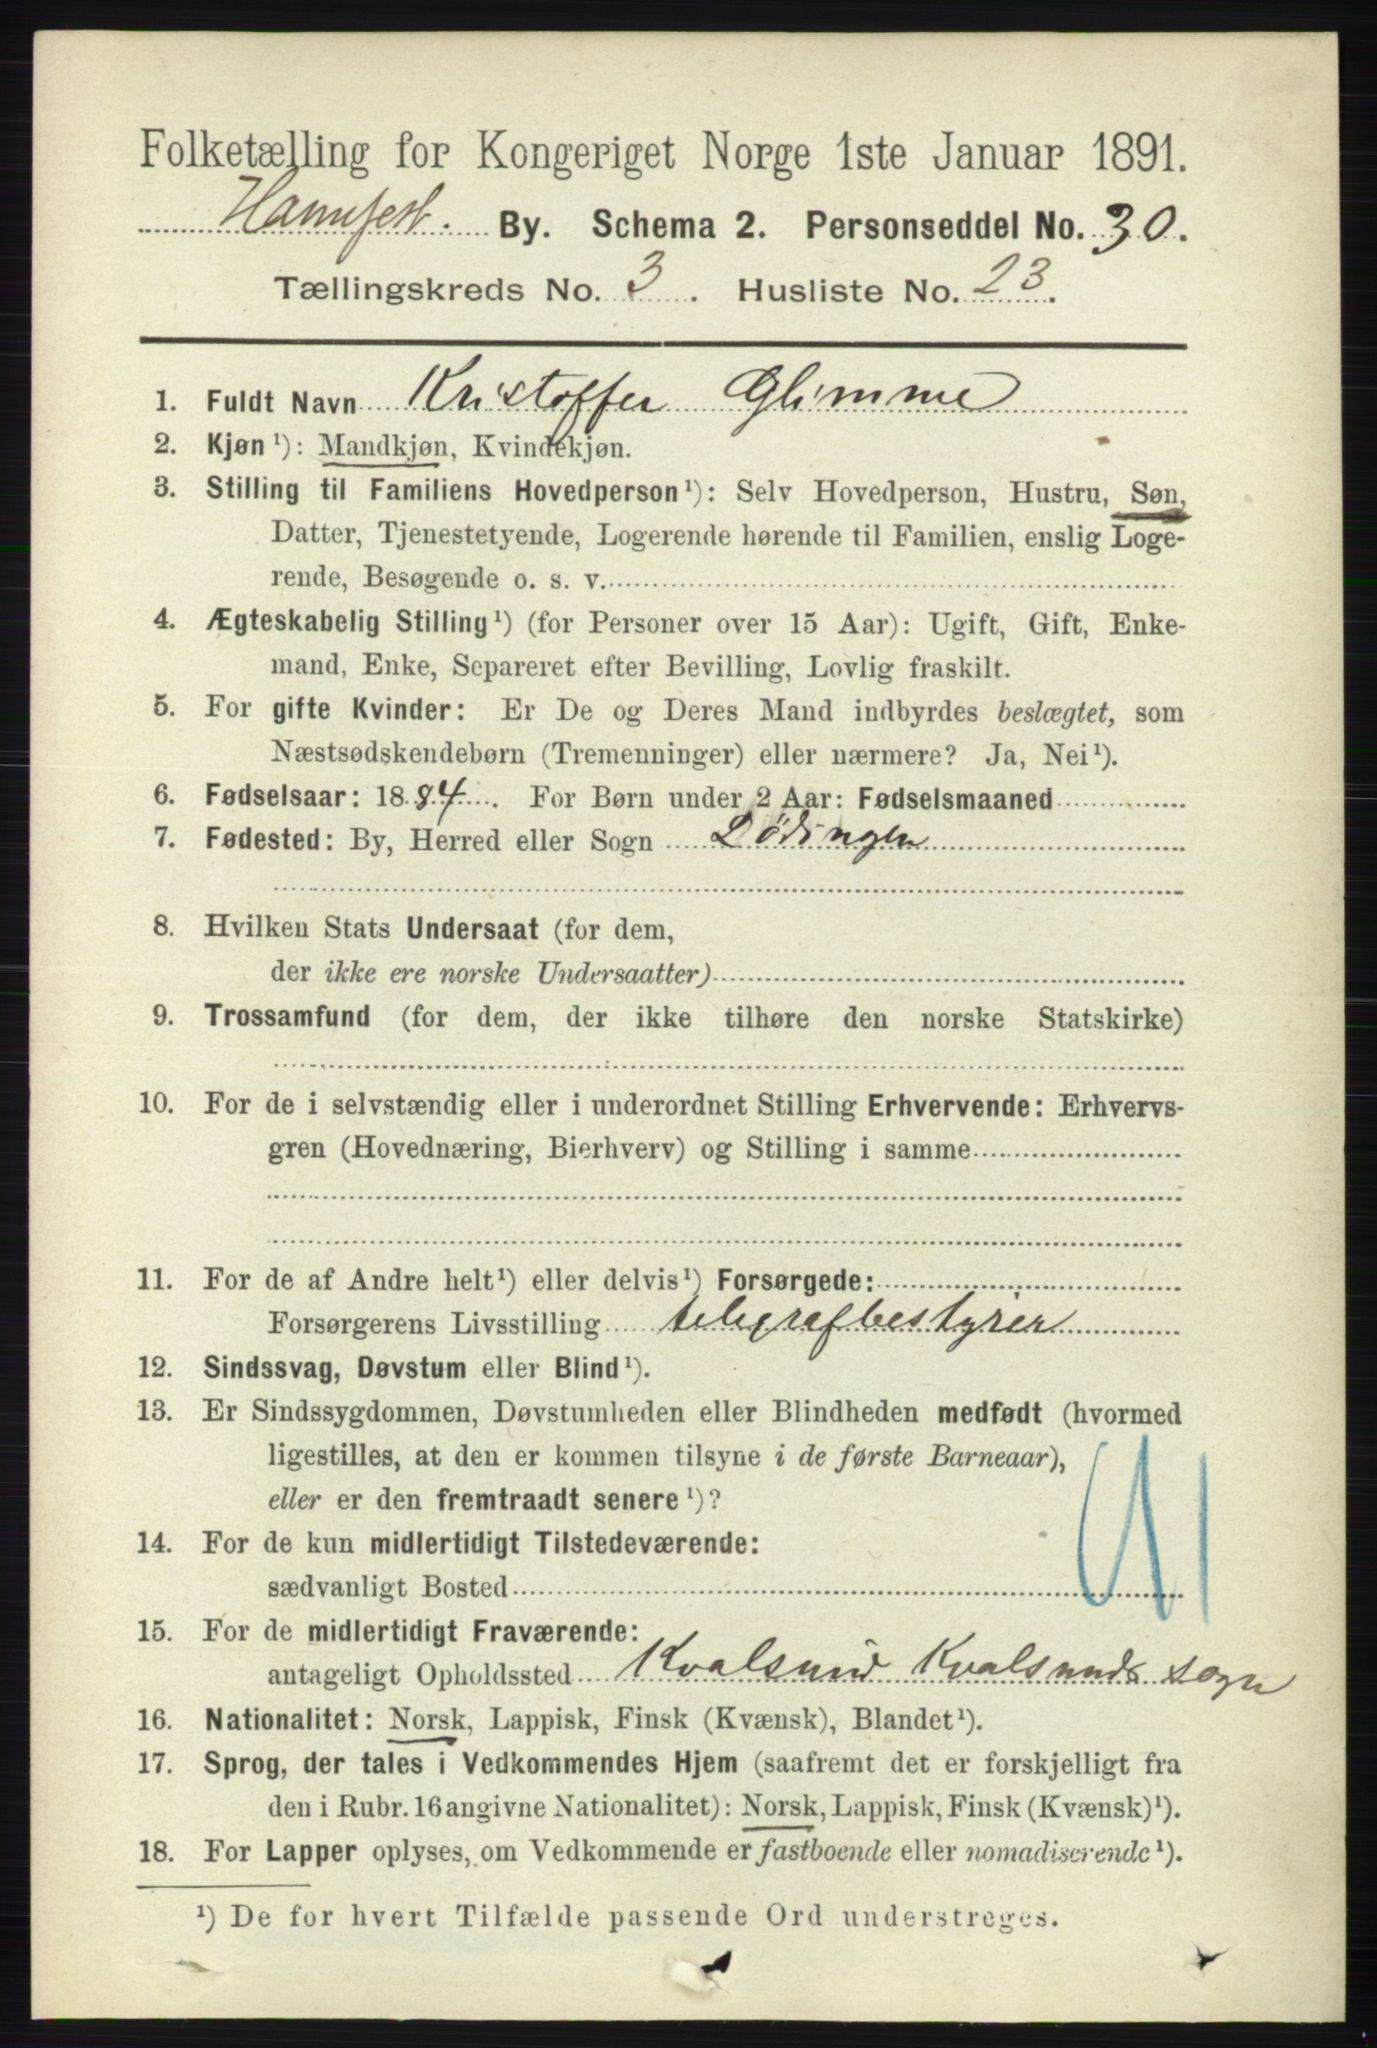 Folketælling for Kongeriget Norge 1ste Januar 1891.
Hammfest. By. Schema 2. Personseddel No. 30.
Tællingskreds No. 3. Husliste No. 23.
1. Fuldt Navn Kristoffer Glimme
2. Kjøn¹): Mandkjøn, Kvindekjøn.
3. Stilling til Familiens Hovedperson¹): Selv Hovedperson, Hustru, Søn,
Datter, Tjenestetyende, Logerende hørende til Familien, enslig Loge-
rende, Besøgende o. s. v.
4. Ægteskabelig Stilling¹) (for Personer over 15 Aar): Ugift, Gift, Enke-
mand, Enke, Separeret efter Bevilling, Lovlig fraskilt.
5. For gifte Kvinder: Er De og Deres Mand indbyrdes beslægtet, som
Næstsødskendebørn (Tremenninger) eller nærmere? Ja, Nei¹).
6. Fødselsaar: 1884. For Børn under 2 Aar: Fødselsmaaned
7. Fødested: By, Herred eller Sogn Lödingen
8. Hvilken Stats Undersaat (for dem,
der ikke ere norske Undersaatter)
9. Trossamfund (for dem, der ikke tilhøre den norske Statskirke)
10. For de i selvstændig eller i underordnet Stilling Erhvervende: Erhvervs-
gren (Hovednæring, Bierhverv) og Stilling i samme
11. For de af Andre helt¹) eller delvis¹) Forsørgede:
Forsørgerens Livsstilling telegrafbestyrer
12. Sindssvag, Døvstum eller Blind¹).
13. Er Sindssygdommen, Døvstumheden eller Blindheden medfødt (hvormed
ligestilles, at den er kommen tilsyne i de første Barneaar),
eller er den fremtraadt senere¹)?
14. For de kun midlertidigt Tilstedeværende:
sædvanligt Bosted
15. For de midlertidigt Fraværende:
antageligt Opholdssted Kvalsund Kvalsunds sogn
16. Nationalitet: Norsk, Lappisk, Finsk (Kvænsk), Blandet¹).
17. Sprog, der tales i Vedkommendes Hjem (saafremt det er forskjelligt fra
den i Rubr. 16 angivne Nationalitet): Norsk, Lappisk, Finsk (Kvænsk)¹).
18. For Lapper oplyses, om Vedkommende er fastboende eller nomadiserende¹).
¹) De for hvert Tilfælde passende Ord understreges.